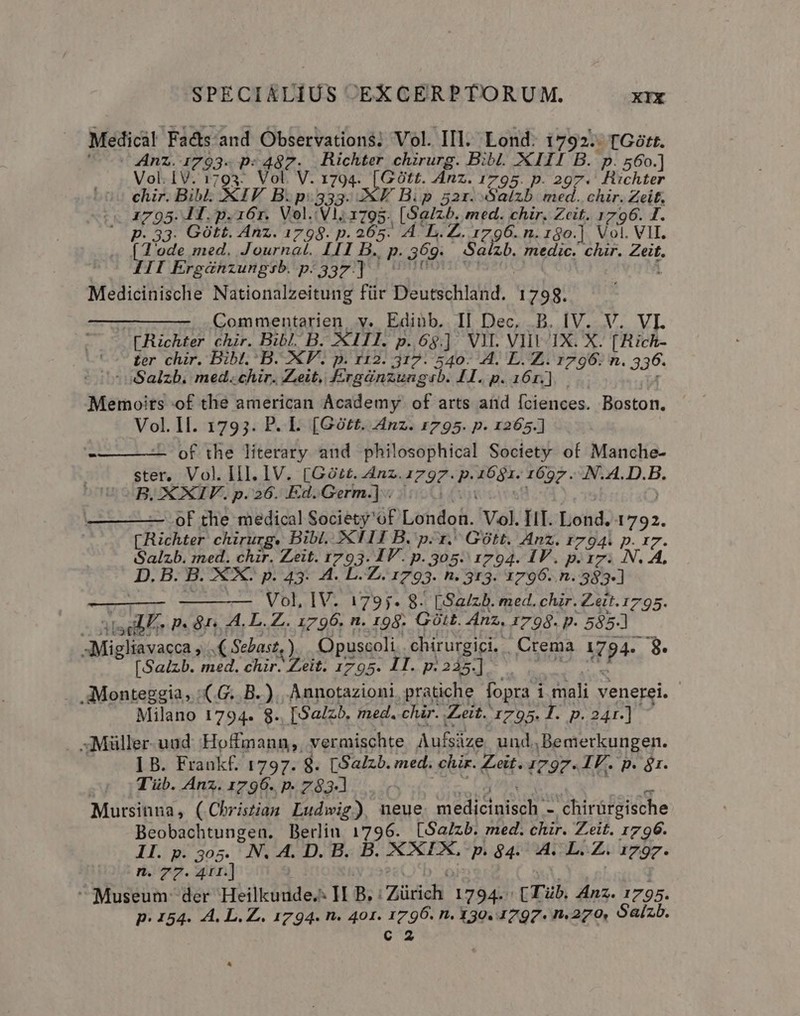 SPECIALIUS EXCERPTORUM. XIX
Medical Facts and Observations. Vol. III. Lond. 1792. [Gött.
Anz. 1793. p. 487. Richter chirurg. Bibl. XIII B. p. 560.]
Vol. IV. 1793. Vol. V. 1794. [Gött. Anz. 1795. p. 297. Richter
chir. Bibl. XIV B. p. 333. XV B. p 521. Salzb med. chir. Zeit.
1795. II. p. 161. Vol. VI. 1795. [Salzb. med. chir. Zeit. 1796. I.
p. 33. Gött. Anz. 1798. p. 265. A L. Z. 1796. n. 180.] Vol. VII.
[Tode med. Journal. III B. p. 369. Salzb. medic. chir. Zeit.
III Ergänzungsb. p. 337.]
Medicinische Nationalzeitung für Deutschland. 1798.
——— Commentarien v. Edinb. II Dec. B. IV. V. VI.
[Richter chir. Bibl. B. XIII. p. 68.] VII. VIII IX. X. [Rich-
ter chir. Bibl. B. XV. p. 112. 317. 540. A. L. Z. 1796. n. 336.
Salzb. med. chir. Zeit. Ergänzungsb. II. p. 161.]
Memoirs of the american Academy of arts and sciences. Boston.
Vol. II. 1793. P. I. [Gött. Anz. 1795. p. 1265.]
——— of the literary and philosophical Society of Manche-
ster. Vol. III. IV. [Gött. Anz. 1797. p. 1681. 1697. N. A. D. B.
B. XXIV. p. 26. Ed. Germ.]
——— of the medical Society of London. Vol. III. Lond. 1792.
[Richter chirurg. Bibl. XIII B. p. 1. Gött. Anz. 1794. p. 17.
Salzb. med. chir. Zeit. 1793. IV. p. 305. 1794. IV. p. 17. N. A.
D. B. B. XX. p. 43. A. L. Z. 1793. n. 313. 1796. n. 383.]
——— ——— Vol. IV. 1795. 8. [Salzb. med. chir. Zeit. 1795.
IV. p. 81. A. L. Z. 1796. n. 198. Gött. Anz. 1798. p. 585.]
Migliavacca, (Sebast.) Opuscoli chirurgici. Crema 1794. 8.
[Salzb. med. chir. Zeit. 1795. II. p. 225.]
Monteggia, (G. B.) Annotazioni pratiche sopra i mali venerei.
Milano 1794. 8. [Salzb. med. chir. Zeit. 1795. I. p. 241.]
Müller und Hoffmann, vermischte Aufsäze und Bemerkungen.
I B. Frankf. 1797. 8. [Salzb. med. chir. Zeit. 1797. IV. p. 81.
Tüb. Anz. 1796. p. 783.]
Mursinna, (Christian Ludwig) neue medicinisch-chirurgische
Beobachtungen. Berlin 1796. [Salzb. med. chir. Zeit. 1796.
II. p. 305. N. A. D. B. B. XXIX. p. 84. A. L. Z. 1797.
n. 77. 411.]
Museum der Heilkunde. II B. Zürich 1794. [Tüb. Anz. 1795.
p. 154. A. L. Z. 1794. n. 401. 1796. n. 130. 1797. n. 270. Salzb.
C 2